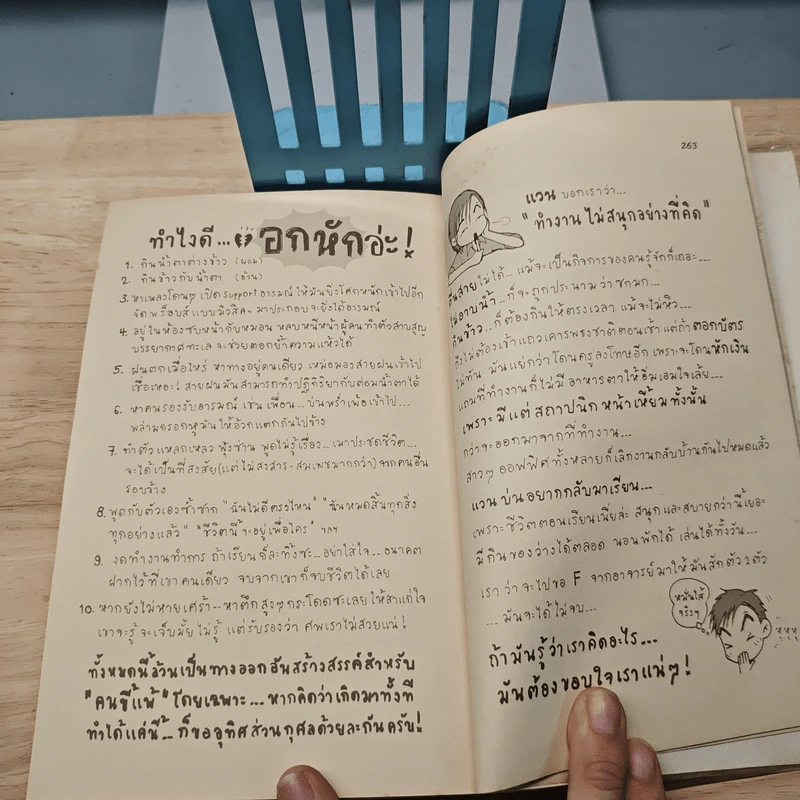 ทำไงดี... อกหักอ่ะ!
1. กินน้ำตาต่างข้าว (ผอม)
2. กินข้าวกับน้ำตา (อ้วน)
3. หาเพลงโดนๆ เปิด support อารมณ์ ให้มันยิ่งโศกหนักเข้าไปอีก
จัดพร็อบส์ แบบมิวสิคฯ มาประกอบจะยิ่งได้อารมณ์
4. อยู่ในห้องซบหน้ากับหมอน หลบหนีหน้าผู้คน ทำตัวสาบสูญ
บรรยากาศทะเล จะช่วยตอกย้ำความแห้วได้
5. ฝนตกเมื่อไหร่ หาทางอยู่คนเดียว เหม่อมองสายฝนเข้าไป
เชื่อเหอะ! สายฝนมันสามารถทำปฏิกิริยากับต่อมน้ำตาได้
6. หาคนรองรับอารมณ์ เช่น เพื่อน.. บ่นพร่ำเพ้อเข้าไป...
พล่ามกรอกหูมัน ให้อ้วกแตกกันไปข้าง
7. ทำตัวแหลกเหลว ฟุ้งซ่าน พูดไม่รู้เรื่อง.. เมาประชดชีวิต...
จะได้เป็นที่สงสัย (แต่ไม่สงสาร-สมเพชมากกว่า) จากคนอื่น
รอบข้าง
8. พูดกับตัวเองซ้ำซาก "ฉันไม่ดีตรงไหน" "ฉันหมดสิ้นทุกสิ่ง
ทุกอย่างแล้ว" "ชีวิตนี้จะอยู่เพื่อใคร" ฯลฯ
9. งดทำงานทำการ ถ้าเรียนก็ละทิ้งซะ.. อย่าใส่ใจ... อนาคต
ฝากไว้ที่เขาคนเดียว จบจากเขาก็จบชีวิตได้เลย
10. หากยังไม่หายเศร้า-- หาตึกสูงๆ กระโดดซะเลย ให้สาแก่ใจ
เขาจะรู้ จะเจ็บมั้ย ไม่รู้ แต่รับรองว่า ศพเราไม่สวยแน่!
ทั้งหมดนี้ล้วนเป็นทางออกอันสร้างสรรค์สำหรับ
"คนขี้แพ้" โดยเฉพาะ... หากคิดว่าเกิดมาทั้งที
ทำได้แค่นี้.. ก็ขออุทิศส่วนกุศลด้วยละกันครับ!
263
แวน บอกเราว่า...
"ทำงานไม่สนุกอย่างที่คิด"
ตื่นสายไม่ได้.. แม้จะเป็นกิจการของคนรู้จักก็เถอะ...
ไม่อาบน้ำ.. ก็จะถูกประนามว่าซกมก...
กินข้าว.. ก็ต้องกินให้ตรงเวลา แม้จะไม่หิว...
ถึงไม่ต้องเข้าแถวเคารพธงชาติตอนเช้า แต่ถ้าตอกบัตร
ไม่ทัน มันแย่กว่าโดนครูลงโทษอีก เพราะจะโดนหักเงิน
แถมที่ทำงานก็ไม่มีอาหารตาให้อิ่มเอมใจเลย...
เพราะมีแต่สถาปนิกหน้าเหี้ยมทั้งนั้น
กว่าจะออกมาจากที่ทำงาน...
สาวๆ ออฟฟิศทั้งหลายก็เลิกงานกลับบ้านกันไปหมดแล้ว
แวนบ่นอยากกลับมาเรียน...
เพราะชีวิตตอนเรียนเนี่ยล่ะ สนุกและสบายกว่านี้เยอะ
มีกินของว่างได้ตลอด นอนพักได้ เล่นได้ทั้งวัน...
เราว่าจะไปขอ F จากอาจารย์มาให้มันสักตัว 2 ตัว
... มันจะได้ไม่จบ...
หมั่นไส้
จริงๆ
หุหุหุ
ถ้ามันรู้ว่าเราคิดอะไร...
มันต้องขอบใจเราแน่ๆ!